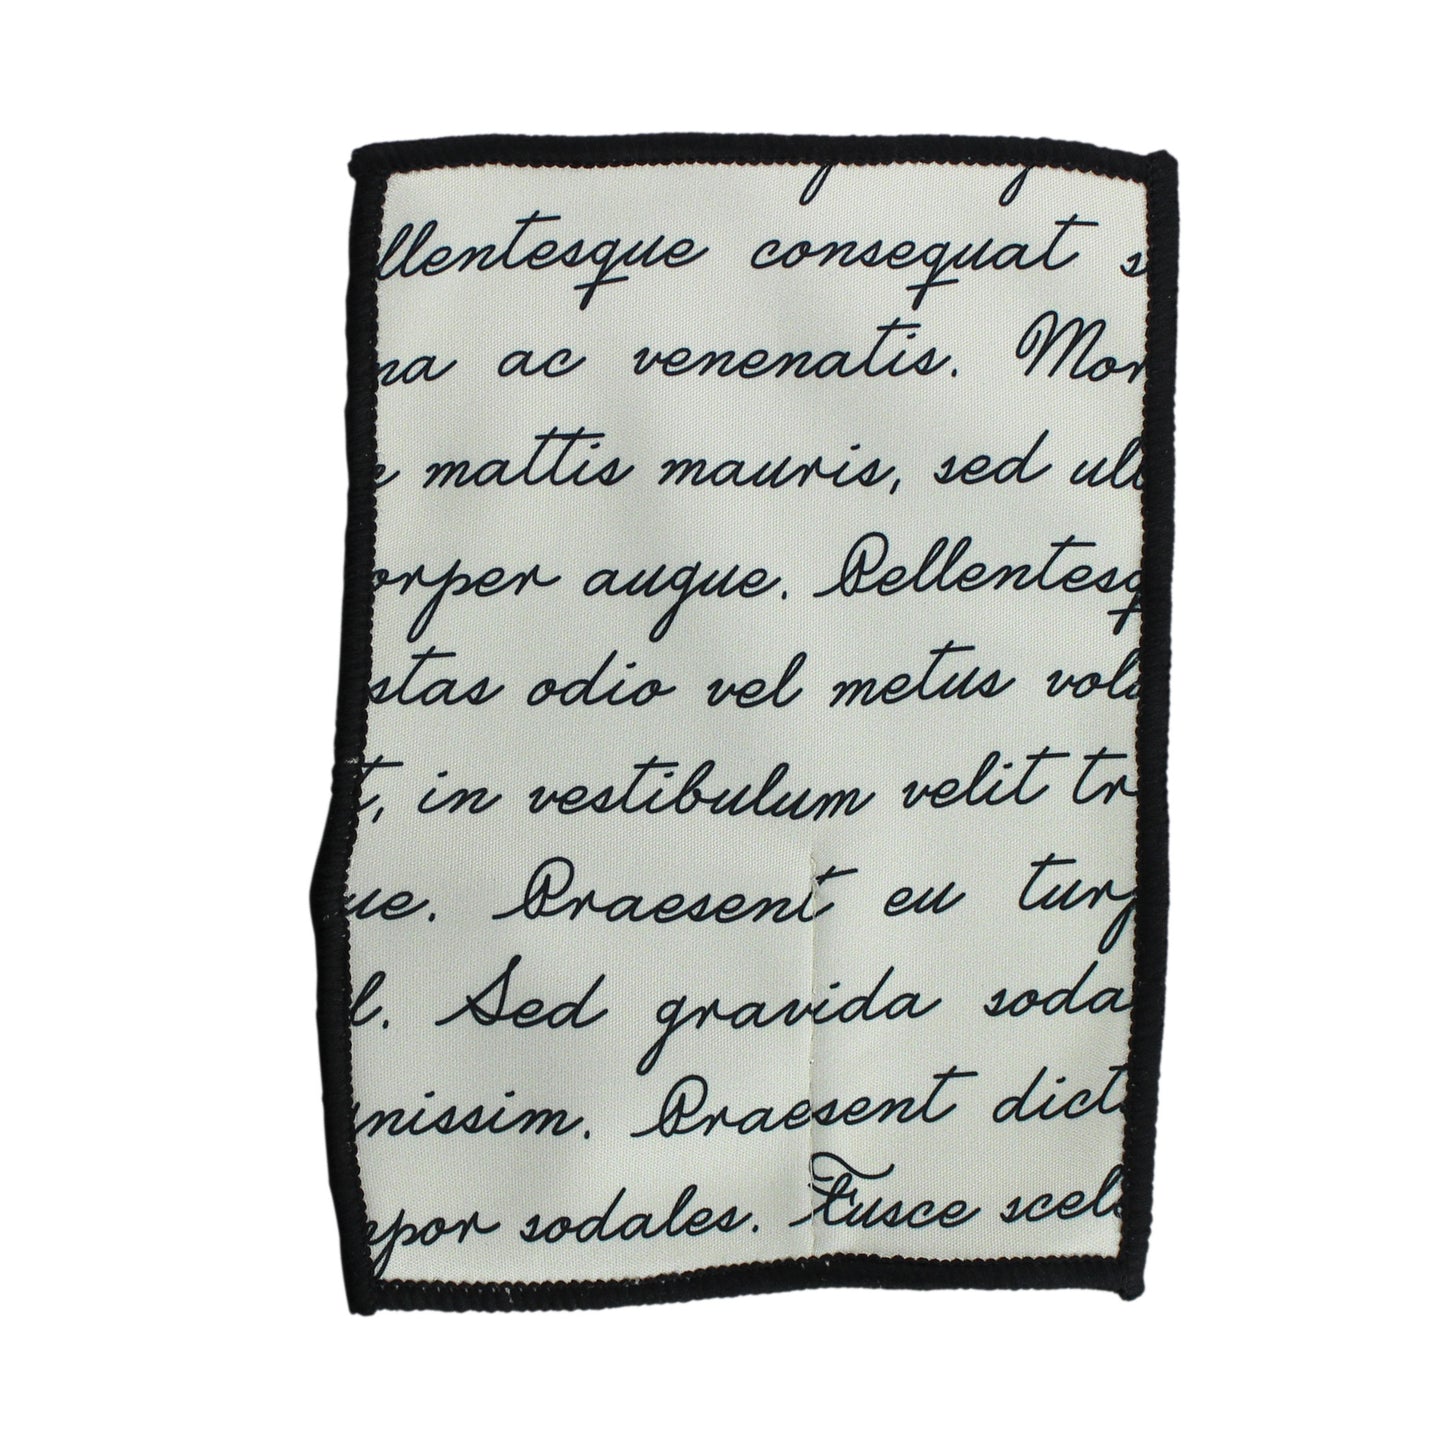 llentesque consequat s
na ac venenatis. Mor
e mattis mauris, sed ull
orper augue. Pellentesq
stas odio vel metus volu
t, in vestibulum velit tr
ue. Praesent eu turp
l. Sed gravida soda
nissim. Praesent dict
mpor sodales. Fusce scel